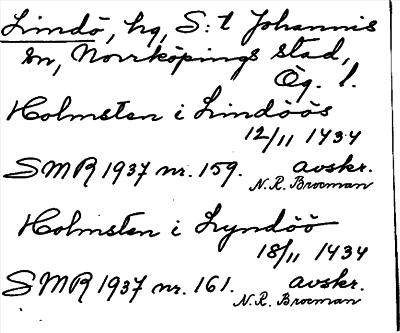 Lindö, hg, S:t Johannis
sn, Norrköpings stad,
Ög. l.
Holmsten i Lindöös
12/11 1434
SMR 1937 nr. 159. avskr.
N.R. Brocman
Holmsten i Lyndöö
18/11 1434
SMR 1937 nr. 161. avskr.
N.R. Brocman